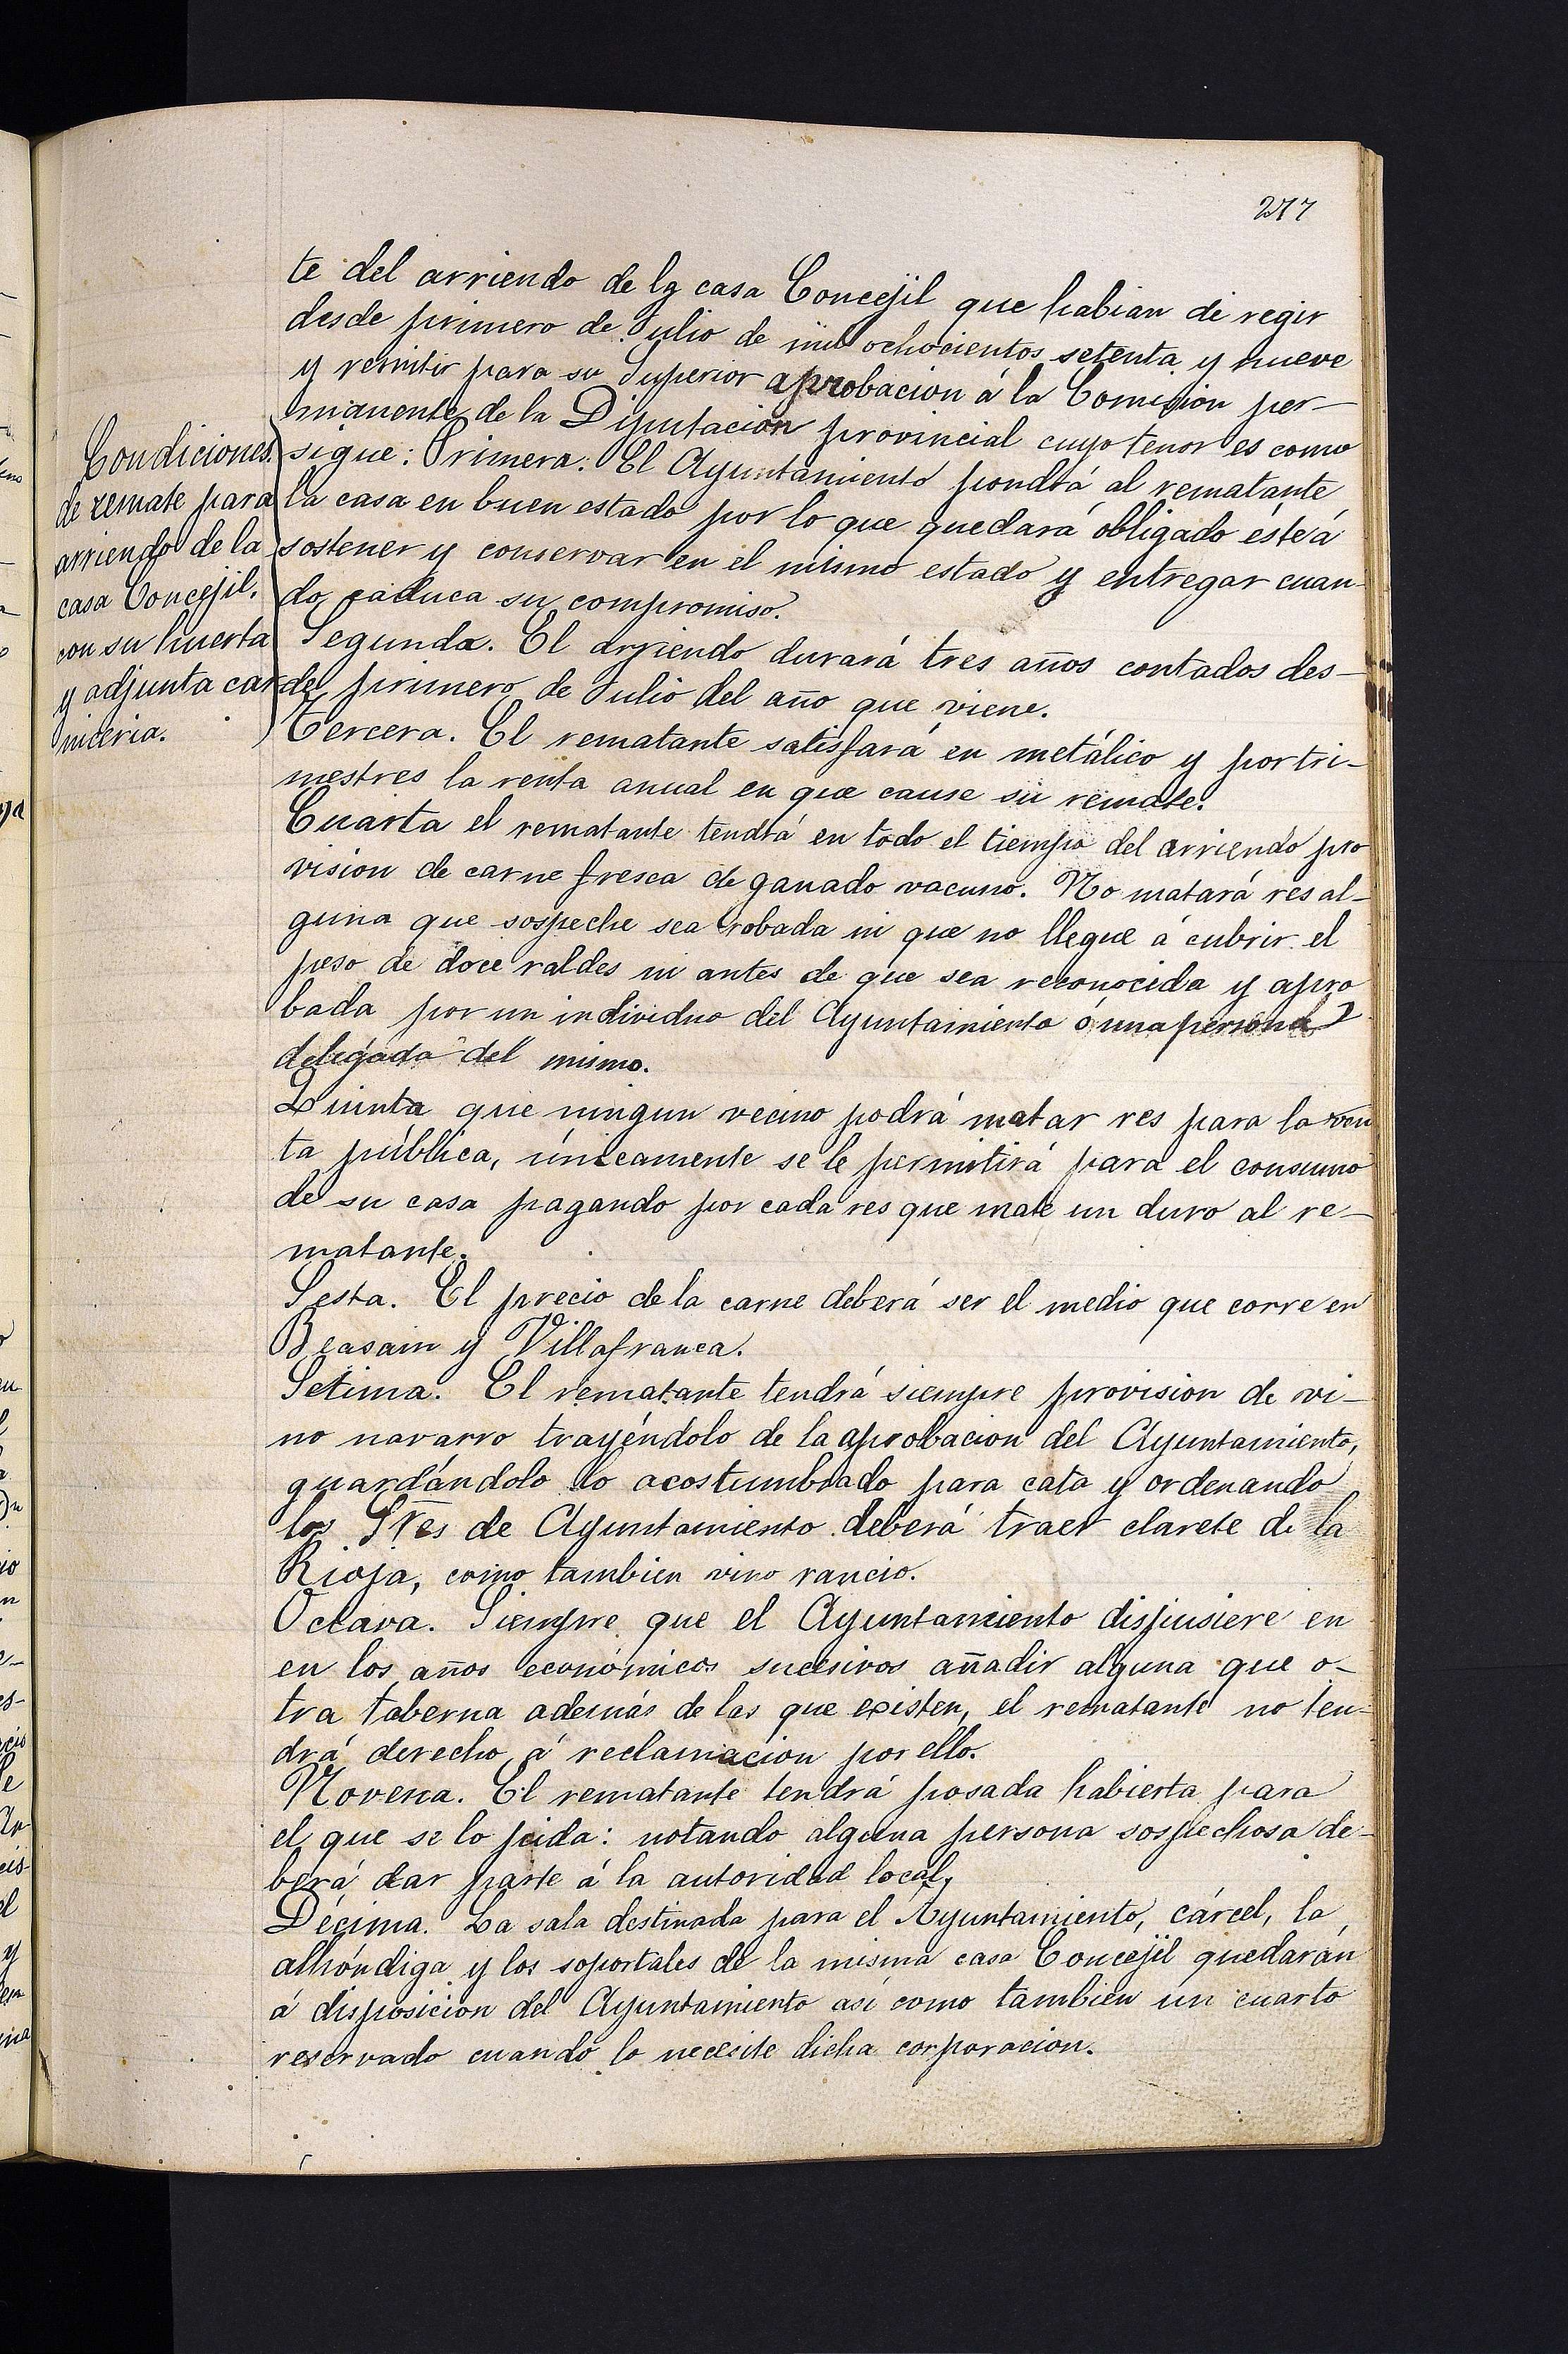 277
te del arriendo de la casa Concejil que habian de regir
desde primero de Julio de mil ochocientos setenta y nueve
y remitir para su Superior aprobacion á la Comision per-
manente de la Diputacion provincial cuyo tenor es como
sigue: Primera: El Ayuntamiento pondrá al rematante
la casa en buen estado por lo que quedará obligado éste á
sostener y conservar en el mismo estado y entregar cuan-
do caduca su compromiso.
Segunda. El arriendo durará tres años contados des-
de primero de Julio del año que viene.
Tercera. El rematante satisfará en metálico y por tri-
mestres la renta anual en que cause su remate.
Cuarta el rematante tendrá en todo el tiempo del arriendo pro
vision de carne fresca de ganado vacuno. No matará res al-
guna que sospeche sea robada ni que no llegue á cubrir el
peso de doce raldes ni antes de que sea reconocida y apro
bada por un individuo del Ayuntamiento ó una persona
delegada del mismo.
Quinta que ningun vecino podrá matar res para la ven
ta pública, únicamente se le permitirá para el consumo
de su casa pagando por cada res que mate un duro al re-
matante.
Sesta. El precio de la carne deberá ser el medio que corre en
Beasain y Villafranca.
Setima. El rematante tendrá siempre provision de vi-
no navarro trayéndolo de la aprobacion del Ayuntamiento,
guardándolo lo acostumbrado para cata y ordenando
los Sres de Ayuntamiento deberá traer clarete de la
Rioja, como tambien vino rancio.
Octava. Siempre que el Ayuntamiento dispusiere en
en los años económicos sucesivos añadir alguna que o-
tra taberna además de las que existen, el rematante no ten-
drá derecho á reclamacion por ello.
Novena. El rematante tendrá posada habierta para
el que se lo pida: notando alguna persona sospechosa de-
berá dar parte á la autoridad local,
Décima. La sala destinada para el Ayuntamiento, cárcel, la
alhóndiga y los soportales de la misma casa Concejil quedarán
á disposicion del Ayuntamiento asi como tambien un cuarto
reservado cuando lo necesite dicha corporacion.
Condiciones
de remate para
arriendo de la
casa Concejil,
con su huerta
y adjunta car
niceria.